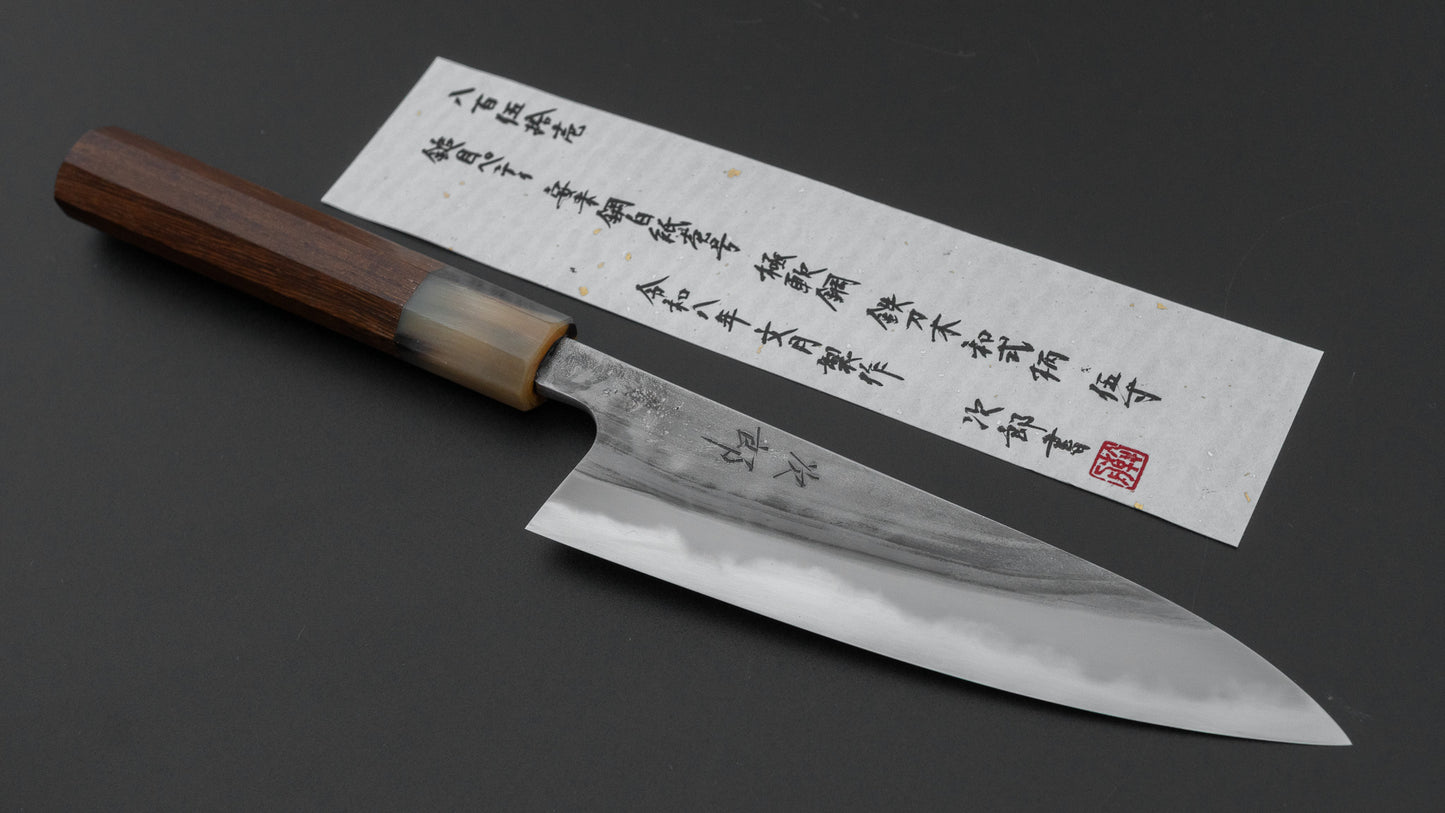 八百伍拾壱
鎚目ペティ 安来鋼白紙壱号 極軟鋼 鉄刀木和式柄 伍寸
令和八年文月製作 次郎書
次郎